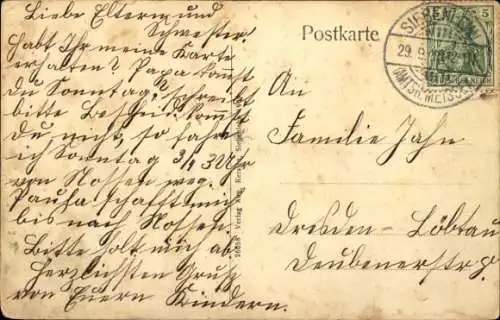 Liebe Eltern und
Schwester.
Habt Ihr meine Karte
erhalten? Papa kommst
du Sonntag? schreibt
bitte Bescheid. kommst
Du nicht, so fahre
ich Sonntag 3/4 3 Uhr
von Nossen weg.
schafft mich
bis nach Nossen.
Bitte holt mich ab
Herzlichsten Gruß
von Euern Kindern.
Postkarte
SIEBENLEHN
29.9.
(AMTSH. MEISSEN)
5
An
Familie Jahn
Dresden-Löbtau
Deubenerstr.
Verlag